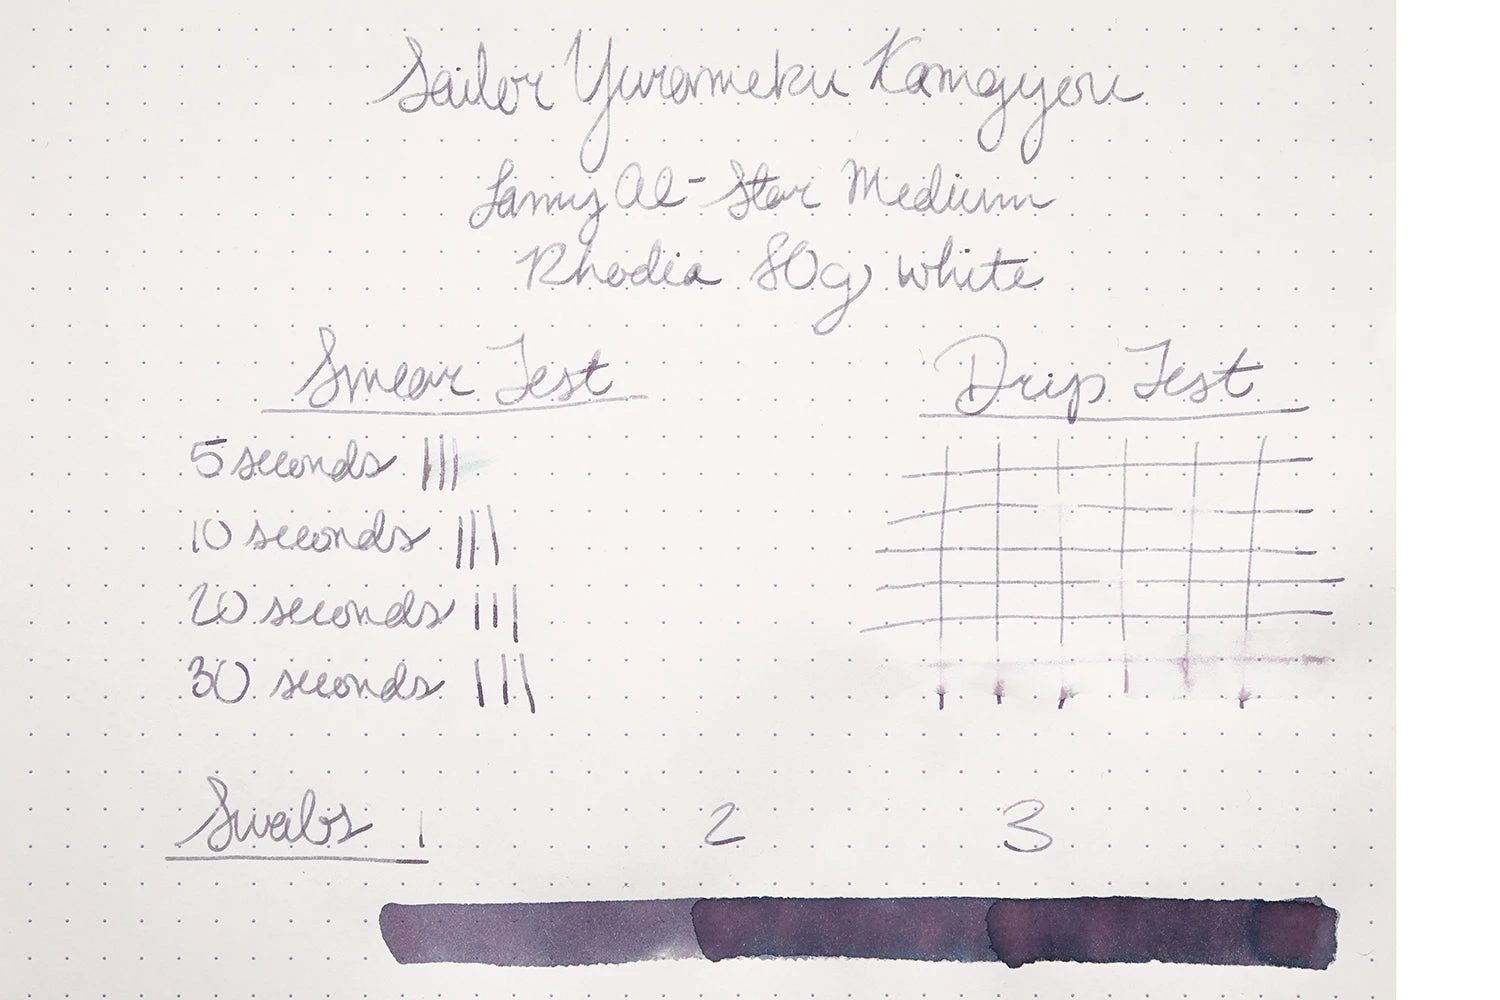 Sailor Yurameku Kamgyou
Lamy Al-Star Medium
Rhodia 80g white
Smear Test
Drip Test
5 seconds
10 seconds
20 seconds
30 seconds
Swabs 1 2 3